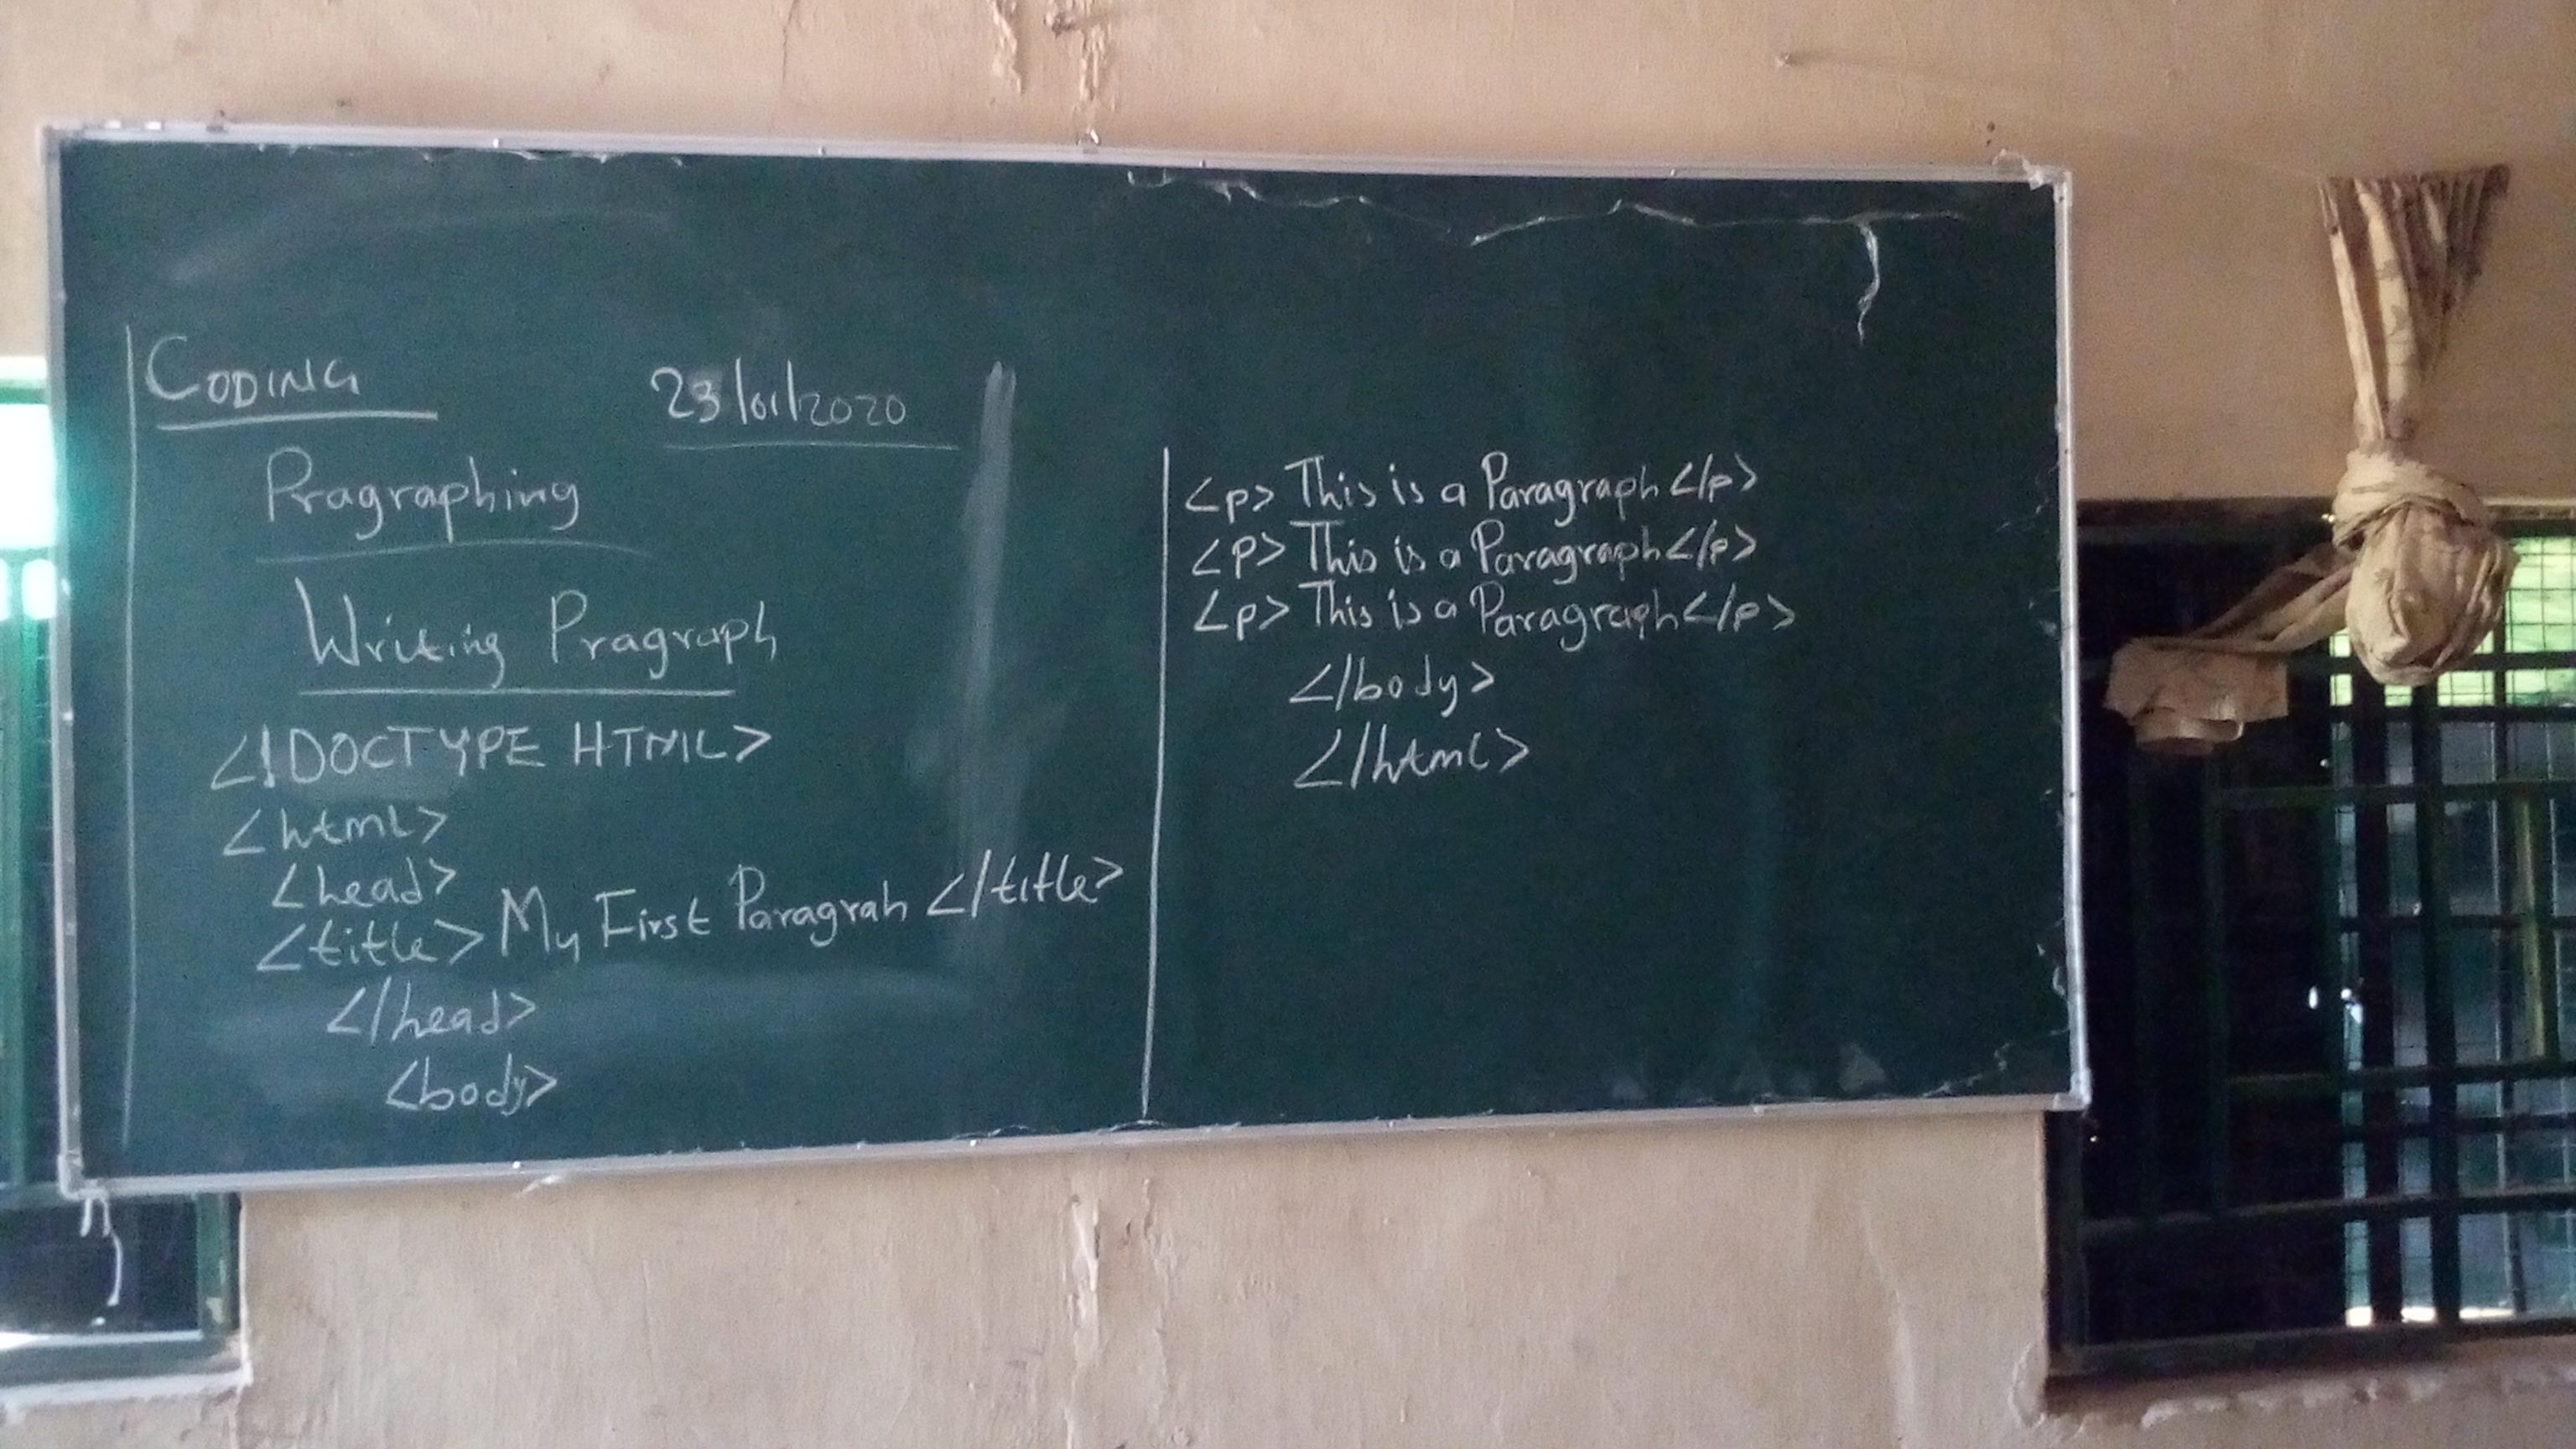 CODING 23/01/2020
Pragraphing
Writing Pragraph
<!DOCTYPE HTML>
<html>
<head>
<title> My First Paragrah </title>
</head>
<body>
<p> This is a Paragraph </p>
<P> This is a Paragraph </p>
<p> This is a Paragraph </p>
</body>
</html>